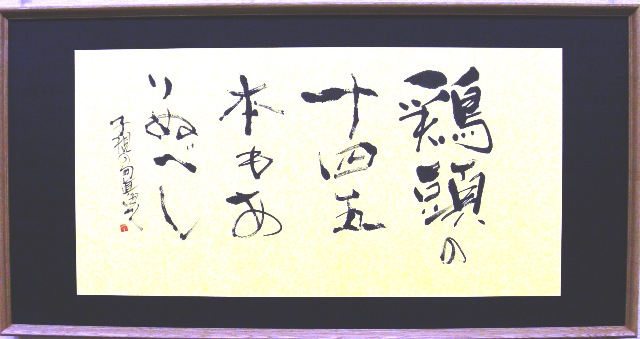 鶏頭の
十四五
本もあ
りぬべし
子規の句